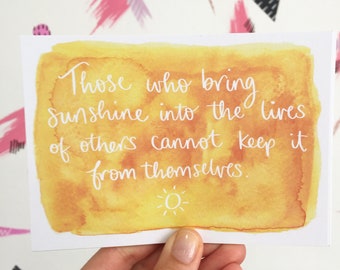 Those who bring
sunshine into the lives
of others cannot keep it
from themselves.